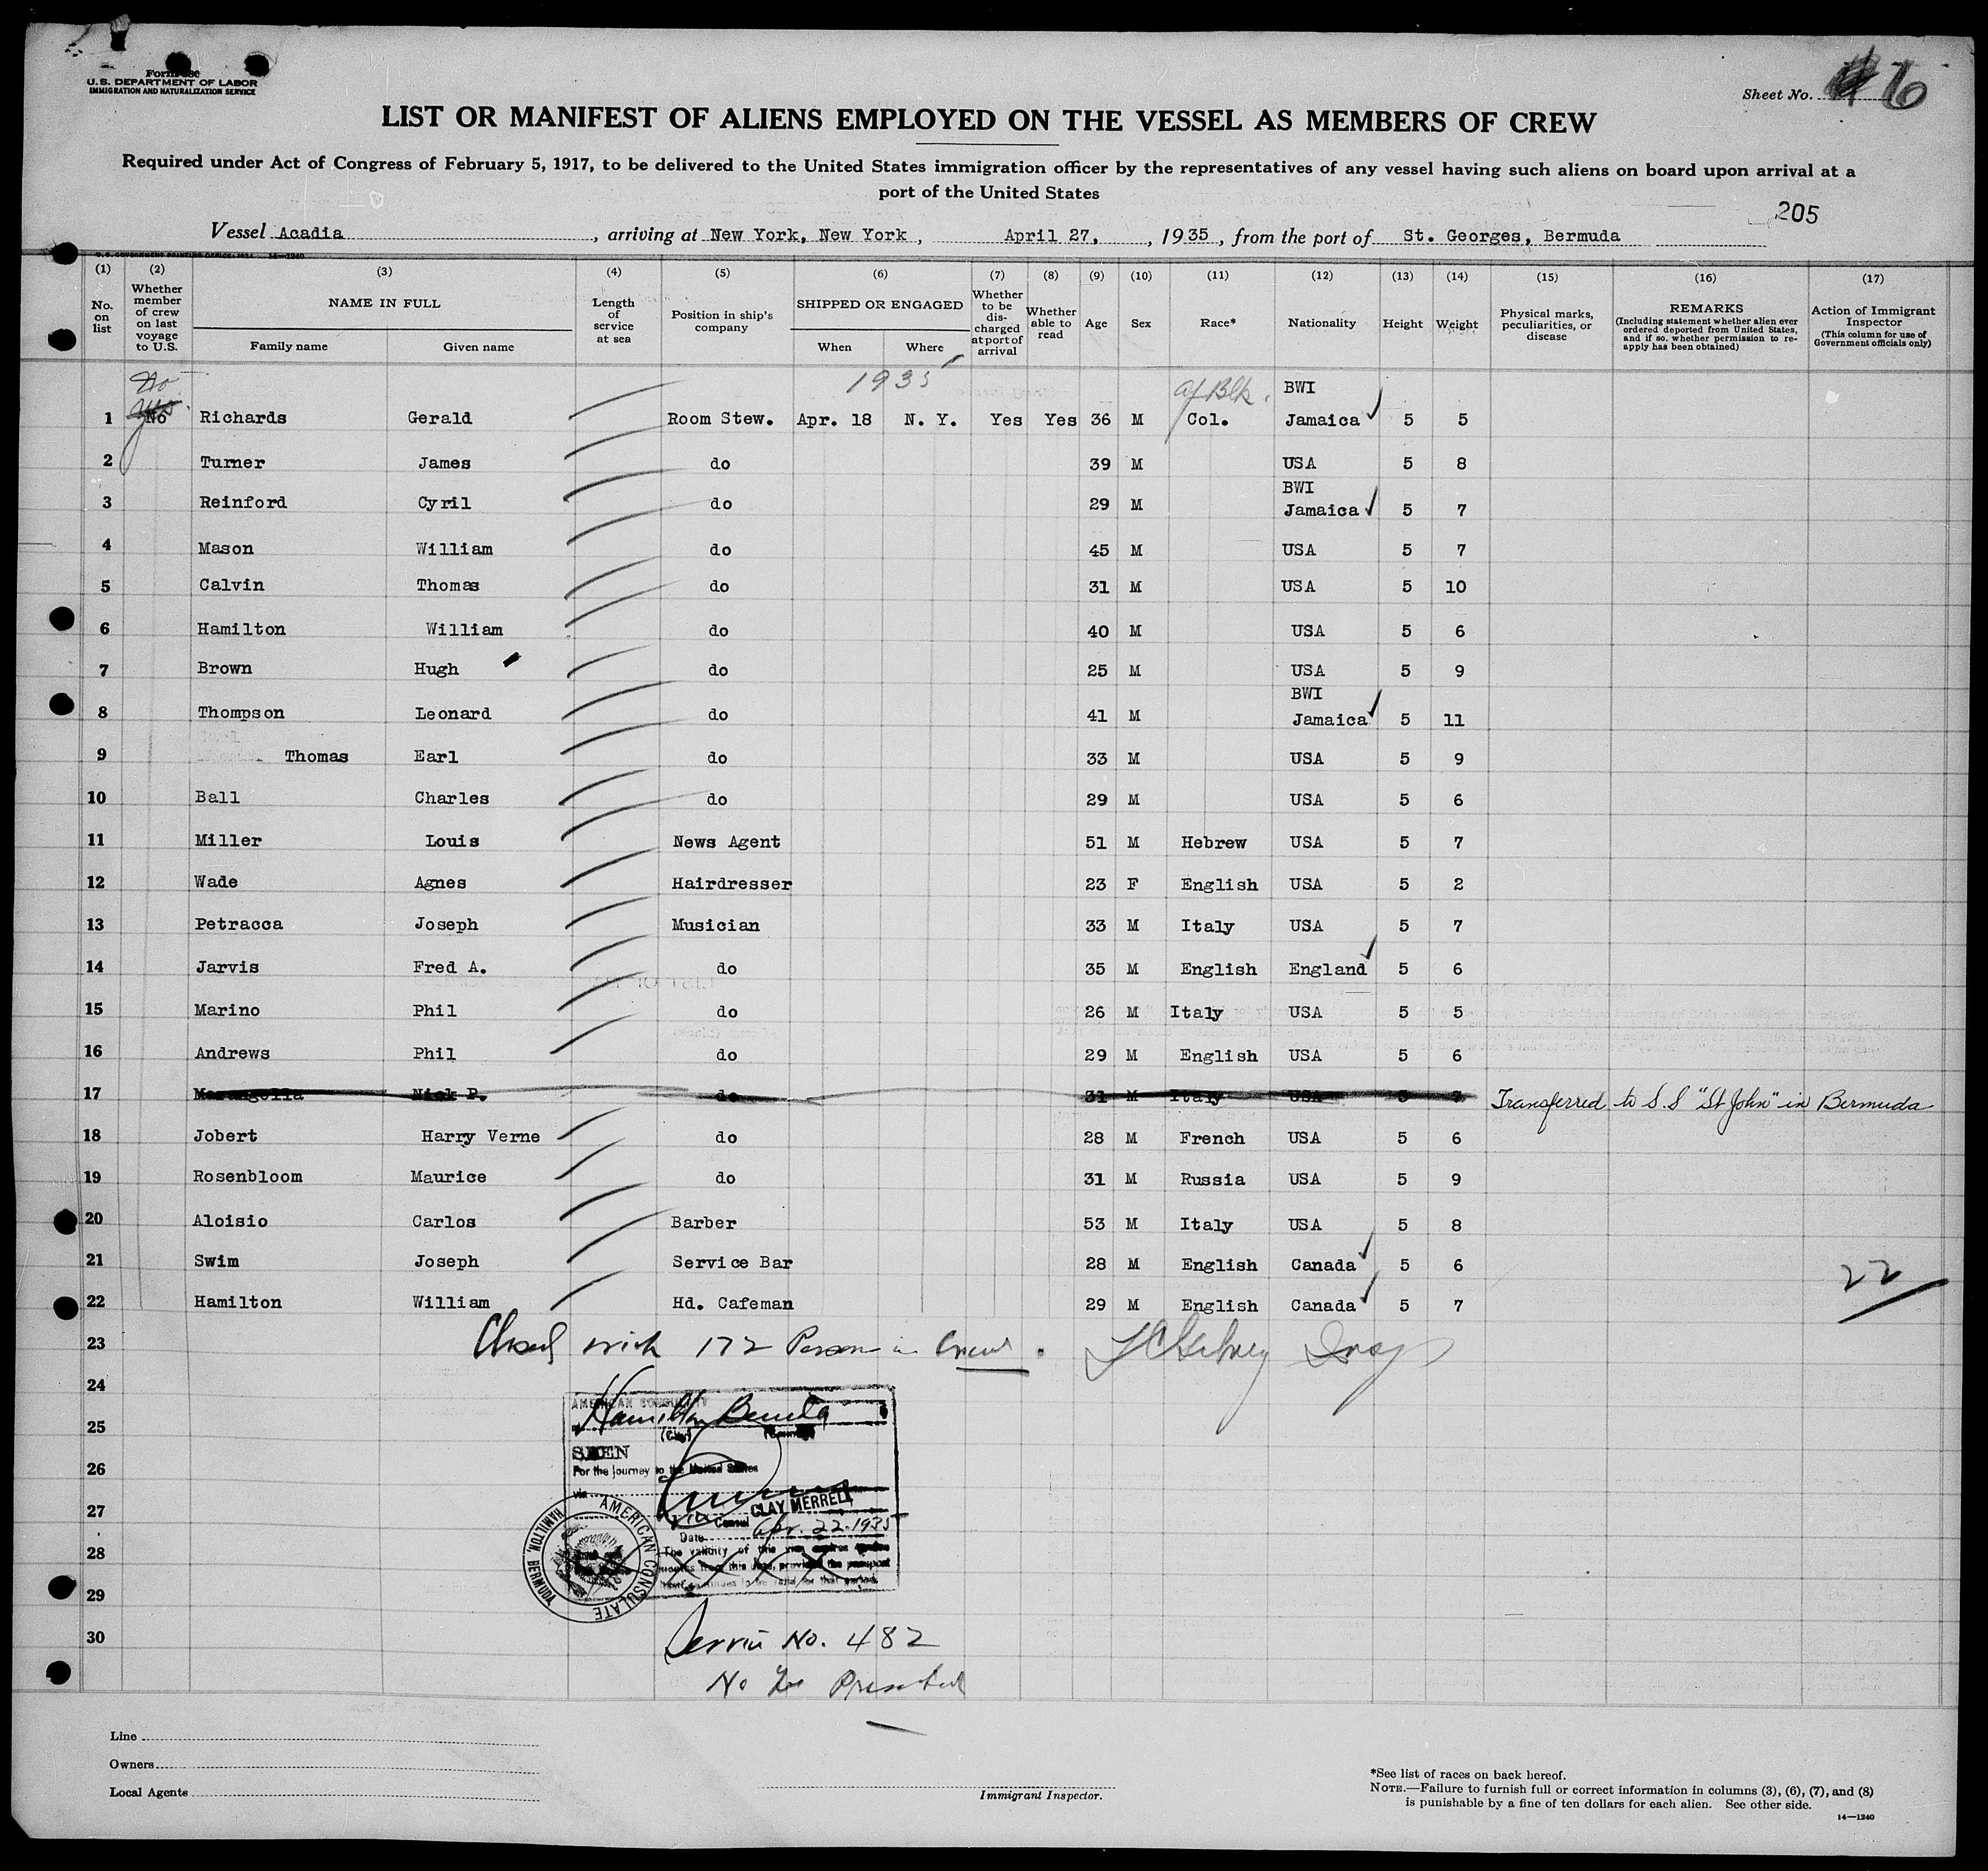 U.S. DEPARTMENT OF LABOR
IMMIGRATION AND NATURALIZATION SERVICE
Sheet No. 16
LIST OR MANIFEST OF ALIENS EMPLOYED ON THE VESSEL AS MEMBERS OF CREW
Required under Act of Congress of February 5, 1917, to be delivered to the United States immigration officer by the representatives of any vessel having such aliens on board upon arrival at a
port of the United States
205
Vessel Acadia, arriving at New York, New York, April 27, 1935, from the port of St. Georges, Bermuda
(1) (2) (3) (4) (5) (6) (7) (8) (9) (10) (11) (12) (13) (14) (15) (16) (17)
No. on list Whether member of crew on last voyage to U.S. NAME IN FULL Family name Given name Length of service at sea Position in ship's company SHIPPED OR ENGAGED When Where Whether to be discharged at port of arrival Whether able to read Age Sex Race* Nationality Height Weight Physical marks, peculiarities, or disease REMARKS (Including statement whether alien ever ordered deported from United States, and if so, whether permission to re-apply has been obtained) Action of Immigrant Inspector (This column for use of Government officials only)
No 1935 Af Blk. BWI
1 No Richards Gerald Room Stew. Apr. 18 N. Y. Yes Yes 36 M Col. Jamaica 5 5
2 Turner James do 39 M USA 5 8
BWI
3 Reinford Cyril do 29 M Jamaica 5 7
4 Mason William do 45 M USA 5 7
5 Calvin Thomas do 31 M USA 5 10
6 Hamilton William do 40 M USA 5 6
7 Brown Hugh do 25 M USA 5 9
BWI
8 Thompson Leonard do 41 M Jamaica 5 11
9 Thomas Earl do 33 M USA 5 9
10 Ball Charles do 29 M USA 5 6
11 Miller Louis News Agent 51 M Hebrew USA 5 7
12 Wade Agnes Hairdresser 23 F English USA 5 2
13 Petracca Joseph Musician 33 M Italy USA 5 7
14 Jarvis Fred A. do 35 M English England 5 6
15 Marino Phil do 26 M Italy USA 5 5
16 Andrews Phil do 29 M English USA 5 6
17 Nick P. do 31 M Italy USA 5 7 Transferred to S.S "St John" in Bermuda
18 Jobert Harry Verne do 28 M French USA 5 6
19 Rosenbloom Maurice do 31 M Russia USA 5 9
20 Aloisio Carlos Barber 53 M Italy USA 5 8
21 Swim Joseph Service Bar 28 M English Canada 5 6
22
22 Hamilton William Hd. Cafeman 29 M English Canada 5 7
23 Closed with 172 Person in Crew.
24
AMERICAN CONSULATE
Hamilton Bermuda
25
(City) (Country)
SEEN
26
For the journey to the United States
via
27
CLAY MERRELL
Vice Consul
Date Apr. 22-1935
28
The validity of this visa expires
months from this date, provided the passport
continues to be valid for that period.
AMERICAN CONSULATE
HAMILTON, BERMUDA
29
30
Service No. 482
No Fee
Line
Owners
Local Agents
Immigrant Inspector.
*See list of races on back hereof.
NOTE.—Failure to furnish full or correct information in columns (3), (6), (7), and (8)
is punishable by a fine of ten dollars for each alien. See other side.
14—1240